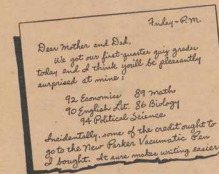 Friday-P.M.
Dear Mother and Dad,
We got our first-quarter quiz grades
today and I think you'll be pleasantly
surprised at mine:
92 Economics 89 Math
90 English Lit. 86 Biology
94 Political Science
Incidentally, some of the credit ought to
go to the New Parker Vacumatic Pen
I bought. It sure makes writing easier